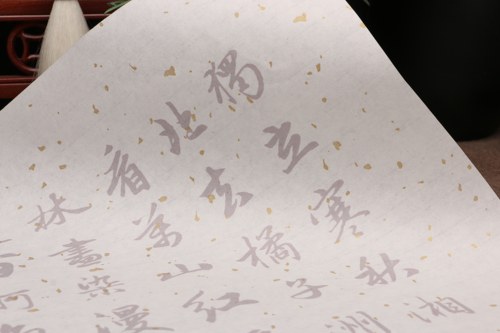 獨立寒秋湘
北去橘子洲
看萬山紅
林盡染漫